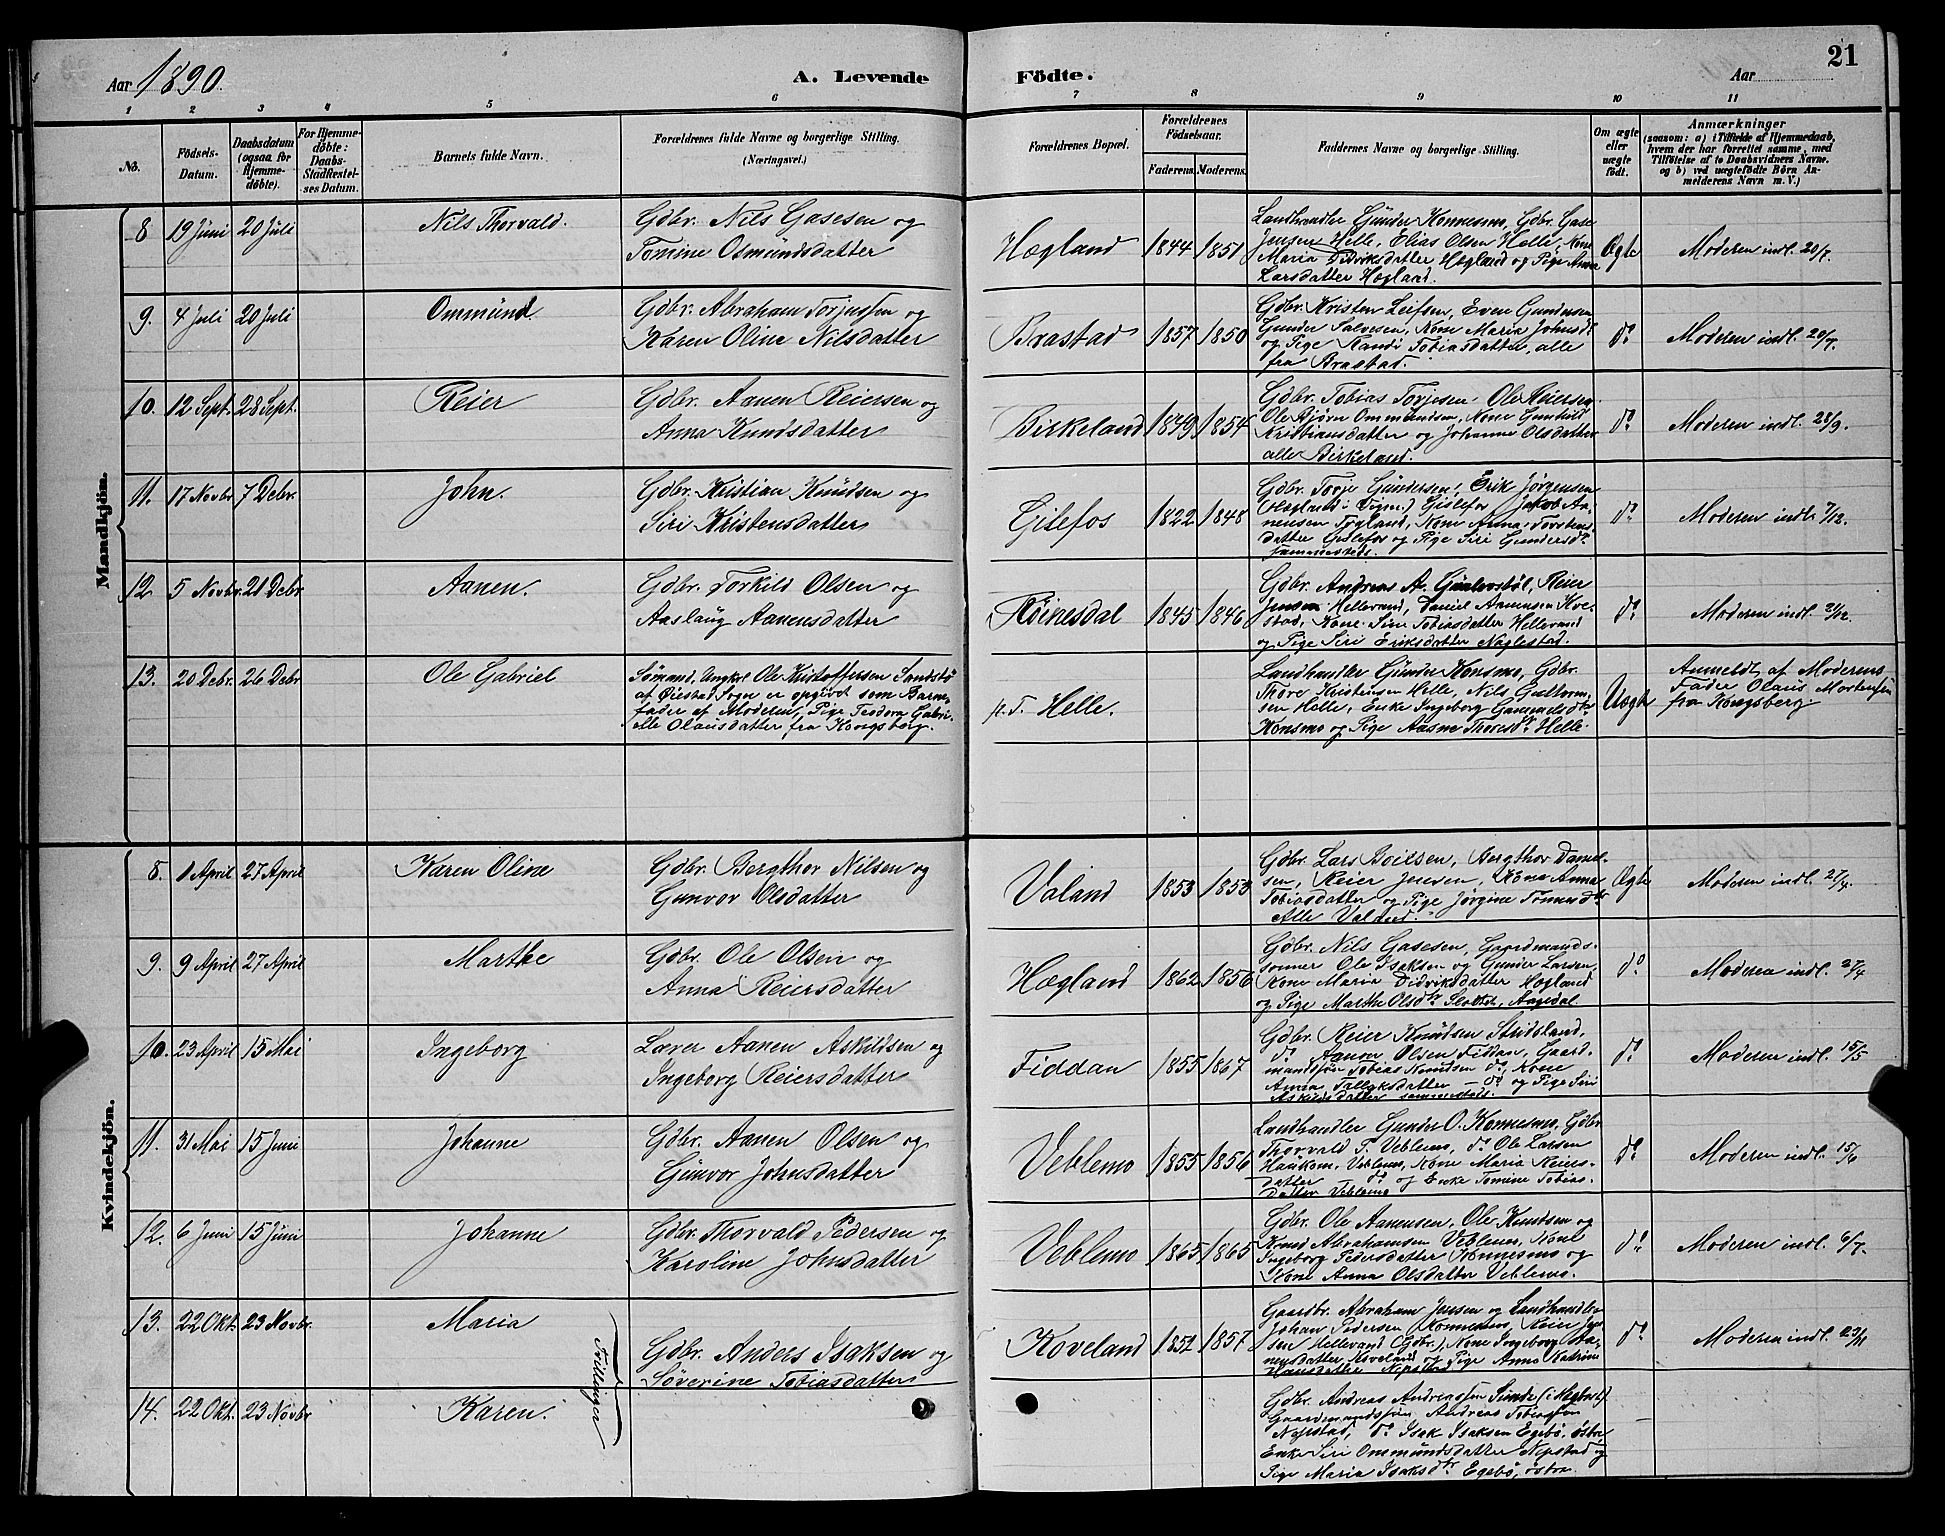 21
Aar 1890. A. Levende Födte. Aar
1 2 3 4 5 6 7 8 9 10 11
No.
Födsels-Datum.
Daabsdatum (ogsaa for Hjemmedöbte).
For Hjemmedöbte: Daabs-Stadfæstelses Datum.
Barnets fulde Navn.
Forældrenes fulde Navne og borgerlige Stilling. (Næringsvei.)
Forældrenes Bopæl.
Forældrenes Födselsaar.
Faderens. Moderens.
Faddernes Navne og borgerlige Stilling.
Om ægte eller uægte födt.
Anmærkninger
(saasom: a) i Tilfælde af Hjemmedaab, hvem der har forrettet samme, med Tilföielse af to Daabsvidners Navne. og b) ved uægtefödte Börn Anmelderens Navn m. V.)
Mandkjön.
8 19 Juni 20 Juli Nils Thorvald. Gdbr. Nils Gasesen og
Tomine Osmundsdatter
Hægland 1844 1851
Landhandler Gunder Konnesmo, Gdbr. Gase
Jensen Helle, Elias Olsen Helle, Kone
Maria Didriksdatter Hægland og Pige Anna
Larsdatter Hægland.
Ægte Moderen indl. 20/7.
9. 4 Juli 20 Juli Ommund. Gdbr. Abraham Torjussen og
Karen Oline Nilsdatter
Brastad 1857 1850
Gdbr. Kristen Leifsen, Even Gundersen
Gunder Salvesen, Kone Maria Johnsdr
og Pige Randi Tobiasdatter, alle
fra Brastad.
do Moderen indl. 20/7.
10. 12 Sept. 28 Sept. Reier Gdbr. Aanen Reiersen og
Anna Knudsdatter
Birkeland 1849 1854
Gdbr. Tobias Torjesen, Ole Reiersen
Ole Bjørn Ommundsen, Kone Gunhild
Kristiansdatter og Johanne Olsdatter
alle Birkeland.
do Moderen indl. 28/9.
11. 17 Novbr. 7 Debr. John. Gdbr. Kristian Knudsen og
Siri Kristensdatter
Gislefos 1822 1848
Gdbr. Torje Gundersen, Erik Jørgensen
Gislefos Jakob Aa-
nensen Fogland, Kone Anna Torstens
datter Gislefos og Pige Siri Gundersdr
sammesteds.
do Moderen indl. 7/12.
12. 5 Novbr. 21 Debr Aanen. Gdbr. Torkild Olsen og
Aaslaug Aanensdatter
Röinesdal 1845 1846
Gdbr. Andreas A. Reier
Jensen Hellevand, Daniel Aanensen Kve-
stad, Kone Sine Tobiasdatter Hellevand
og Pige Siri Eriksdatter Naglestad.
do Moderen indl. 21/12.
13. 20 Debr. 26 Debr Ole Gabriel Sømand, Ungkal Ole Kristoffersen Sandstø
af Øiestad Sogn er opgivet som Barne-
fader af Moderen, Pige Teodora Gabri-
elle Olausdatter fra Kongsberg.
p.T. Helle.
Landhandler Gunder Konsmo, Gdbr.
Thore Kristensen Helle, Nils Guttorm-
sen Helle, Enke Ingeborg Gunnulsdtr
Konsmo og Pige Aasne Thoresdr Helle.
Uægte Anmeldt af Moderens
Fader Olaus Mortensen
fra Kongsberg
Kvindekjön.
8. 1 April 27 April Karen Oline Gdbr. Bergthor Nilsen og
Gunvor Olsdatter
Valand 1853 1853
Gdbr. Lars Boilsen, Bergthor Daniel-
sen, Reier Jensen, Kone Anna
Tobiasdatter og Pige Jørgine Tønnesdtr
Alle Valand.
Ægte Moderen indl. 27/4.
9. 9 April 27 April Marthe Gdbr. Ole Olsen og
Anna Reiersdatter
Hægland 1862 1856
Gdbr. Nils Gasesen, Gaardmands-
sønner Ole Isaksen og Gunder Larsen,
Kone Maria Didriksdatter Hægland
og Pige Marthe Olsdtr Slottet, Aaredal
do Moderen indl. 27/4
10. 23 April 15 Mai Ingeborg Lærer Aanen Askildsen og
Ingeborg Reiersdatter
Fiddan 1855 1867
Gdbr. Reier Knudsen Stridsland,
do Aanen Olsen Fiddan, Gaard-
mandssön Tobias Knudsen do, Kone
Anna Tallaksdatter — do og Pige Siri
Askildsdatter sammesteds.
do Moderen indl. 15/5
11. 31 Mai 15 Juni Johanne Gdbr. Aanen Olsen og
Gunvor Johnsdatter
Veblemo 1855 1856
Landhandler Gunder O. Konnesmo, Gdbr.
Thorvald P. Veblemo, do Ole Larsen
Haukom, Veblemo, Kone Maria Reiers-
datter do og Enke Tomine Tobias-
datter Veblemo
do Moderen indl. 15/6
12. 6 Juni 15 Juni Johanne Gdbr. Thorvald Pedersen og
Karoline Johnsdatter
Veblemo 1865 1865
Gdbr. Ole Aanensen, Ole Knudsen og
Knud Abrahamsen Veblemo, Kone
Ingeborg Pedersdatter Konnesmo og
Kone Anna Olsdatter Veblemo.
do Moderen indl. 6/7.
13. 22 Okt. 23 Novbr. Maria
Tvillinger
Gdbr. Anders Isaksen og
Severine Tobiasdatter
Koveland 1852 1857
Gaardbr. Abraham Jensen og Landhandler
Johan Pedersen Konnesmo, Reier Jen-
sen Hellevand (Gdbr.), Kone Ingeborg Aa-
nensdatter Koveland og Pige Anna Katrine
Hansdatter Nepstad
do Moderen indl. 23/11
14. 22 Okt. 23 Novbr Karen.
Gdbr. Andreas Andreassen
Gaardmandssön Andreas Tobiassen
Nepstad, do Isak Isaksen Egebö, östre,
Enke Siri Ommundsdatter Nepstad og
Pige Maria Isaksdtr Egebö, östre.